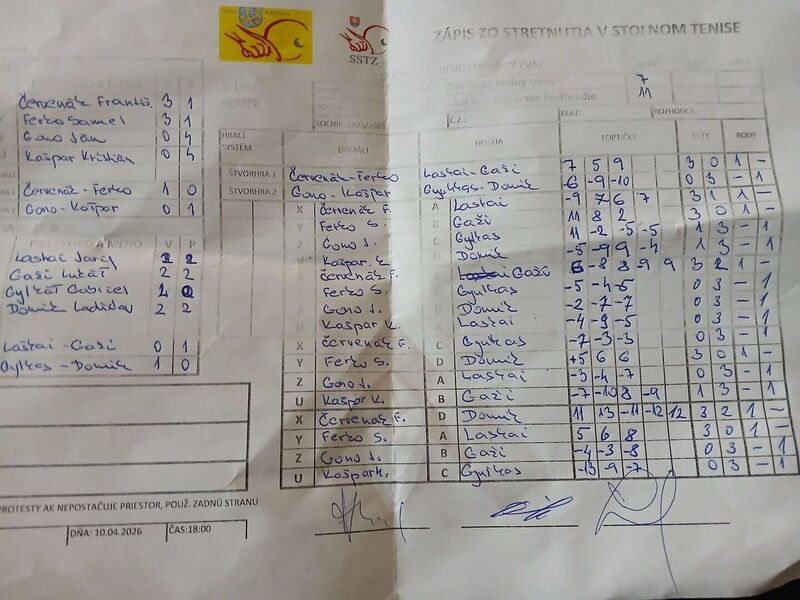 ZÁPIS ZO STRETNUTIA V STOLNOM TENISE
SSTZ
STOLNOTENISOVÝ ZVÄZ
7
11
ROČNÍK 2025/2026
Č.Z.:
KOLO:
HRACÍ SYSTÉM DOMÁCI HOSTIA LOPTIČKY SETY BODY
ŠTVORHRA 1 Červenák - Ferko Laskai - Gaši 7 5 9 3 0 1 -
ŠTVORHRA 2 Gono - Kašpar Gyulkas - Domik -6 -9 -10 0 3 - 1
X Červenák F. A Laskai -9 7 6 7 3 1 1 -
Y Ferko S. B Gaži 11 8 2 3 0 1 -
Z Gono J. C Gylkas 11 -2 -5 -5 1 3 - 1
U Kašpar K. D Domik -5 -9 9 -4 1 3 - 1
Červenák F. Gaži 6 -8 8 -9 9 3 2 1 -
Ferko S. Gyulkas -5 -4 -5 0 3 - 1
Gono J. D Domik -2 -7 -7 0 3 - 1
U Kašpar K. A Laskai -4 -9 -5 0 3 - 1
X Červenák F. C Gyulkas -7 -3 -3 0 3 - 1
Y Ferko S. D Domik +5 6 6 3 0 1 -
Z Gono J. A Laskai -3 -4 -7 0 3 - 1
U Kašpar K. B Gaži -7 -10 8 -9 1 3 - 1
X Červenák F. D Domik 11 13 -11 -12 12 3 2 1 -
Y Ferko S. A Laskai 5 6 8 3 0 1 -
Z Gono J. B Gaži -4 -3 -8 0 3 - 1
U Kašpar K. C Gyulkas -13 -9 -7 0 3 - 1
PRIEZVISKO A MENO V P
Červenák Františ. 3 1
Ferko Samel 3 1
Gono Ján 0 4
Kašpar Kristián 0 4
Červenák - Ferko 1 0
Gono - Kašpar 0 1
PRIEZVISKO A MENO V P
Laskai Juraj 2 2
Gaži Lukáš 2 2
Gylkáš Gabriel
Domik Ladislav 2 2
Laskai - Gaši 0 1
Gylkas - Domik 1 0
PROTESTY AK NEPOSTAČUJE PRIESTOR, POUŽ. ZADNÚ STRANU
DŇA: 10.04.2026 ČAS:18:00